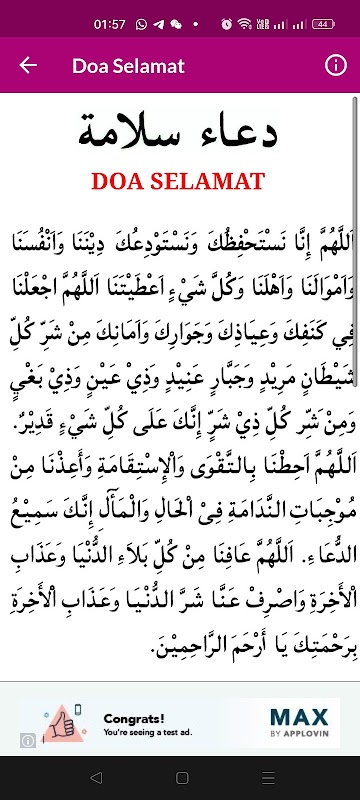 01:57
44
Doa Selamat
دعاء سلامة
DOA SELAMAT
اَللَّهُمَّ إِنَّا نَسْتَحْفِظُكَ وَنَسْتَوْدِعُكَ دِيْنَنَا وَاَنْفُسَنَا
وَاَمْوَالَنَا وَاَهْلَنَا وَكُلَّ شَيْءٍ اَعْطَيْتَنَا اَللَّهُمَّ اجْعَلْنَا
فِي كَنَفِكَ وَعِيَاذِكَ وَجَوَارِكَ وَاَمَانِكَ مِنْ شَرِّ كُلِّ
شَيْطَانٍ مَرِيْدٍ وَجَبَّارٍ عَنِيْدٍ وَذِيْ عَيْنٍ وَذِيْ بَغْيٍ
وَمِنْ شَرِّ كُلِّ ذِيْ شَرٍّ إِنَّكَ عَلَى كُلِّ شَيْءٍ قَدِيْرٌ.
اَللَّهُمَّ اَحِطْنَا بِالتَّقْوَى وَاْلإِسْتِقَامَةِ وَأَعِذْنَا مِنْ
مُوْجِبَاتِ النَّدَامَةِ فِىْ اْلحَالِ وَالْمَأَلِ إِنَّكَ سَمِيْعُ
الدُّعَاءِ. اَللَّهُمَّ عَافِنَا مِنْ كُلِّ بَلاَءِ الدُّنْيَا وَعَذَابِ
اْلأَخِرَةِ وَاصْرِفْ عَنَّا شَرَّ الدُّنْيَا وَعَذَابِ اْلأَخِرَةِ
بِرَحْمَتِكَ يَا أَرْحَمَ الرَّاحِمِيْنَ.
Congrats!
You're seeing a test ad.
MAX
BY APPLOVIN